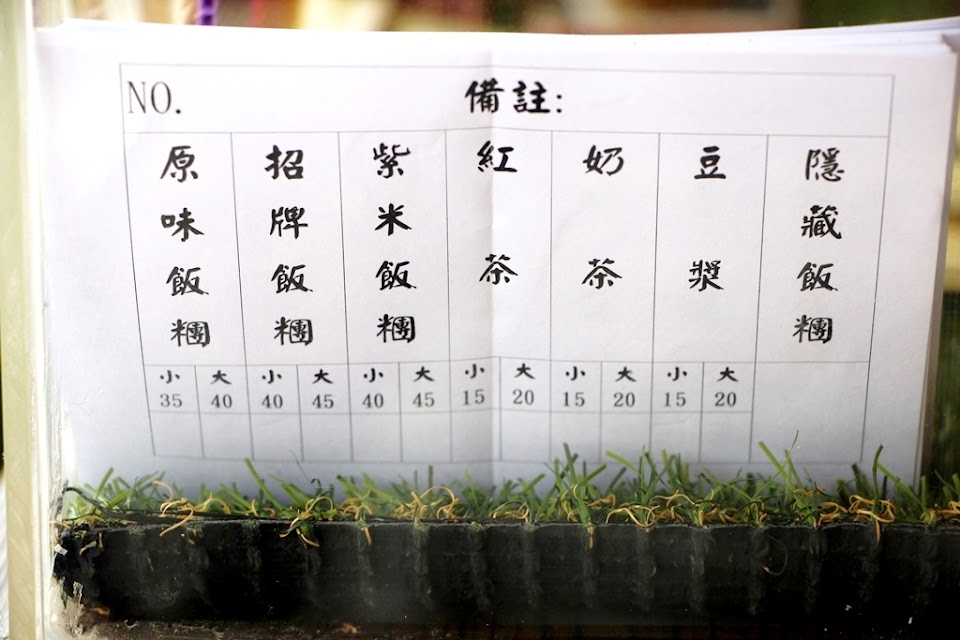 NO. 備註:
原味飯糰
招牌飯糰
紫米飯糰
紅茶
奶茶
豆漿
隱藏飯糰
小 大 小 大 小 大 小 大 小 大 小 大
35 40 40 45 40 45 15 20 15 20 15 20